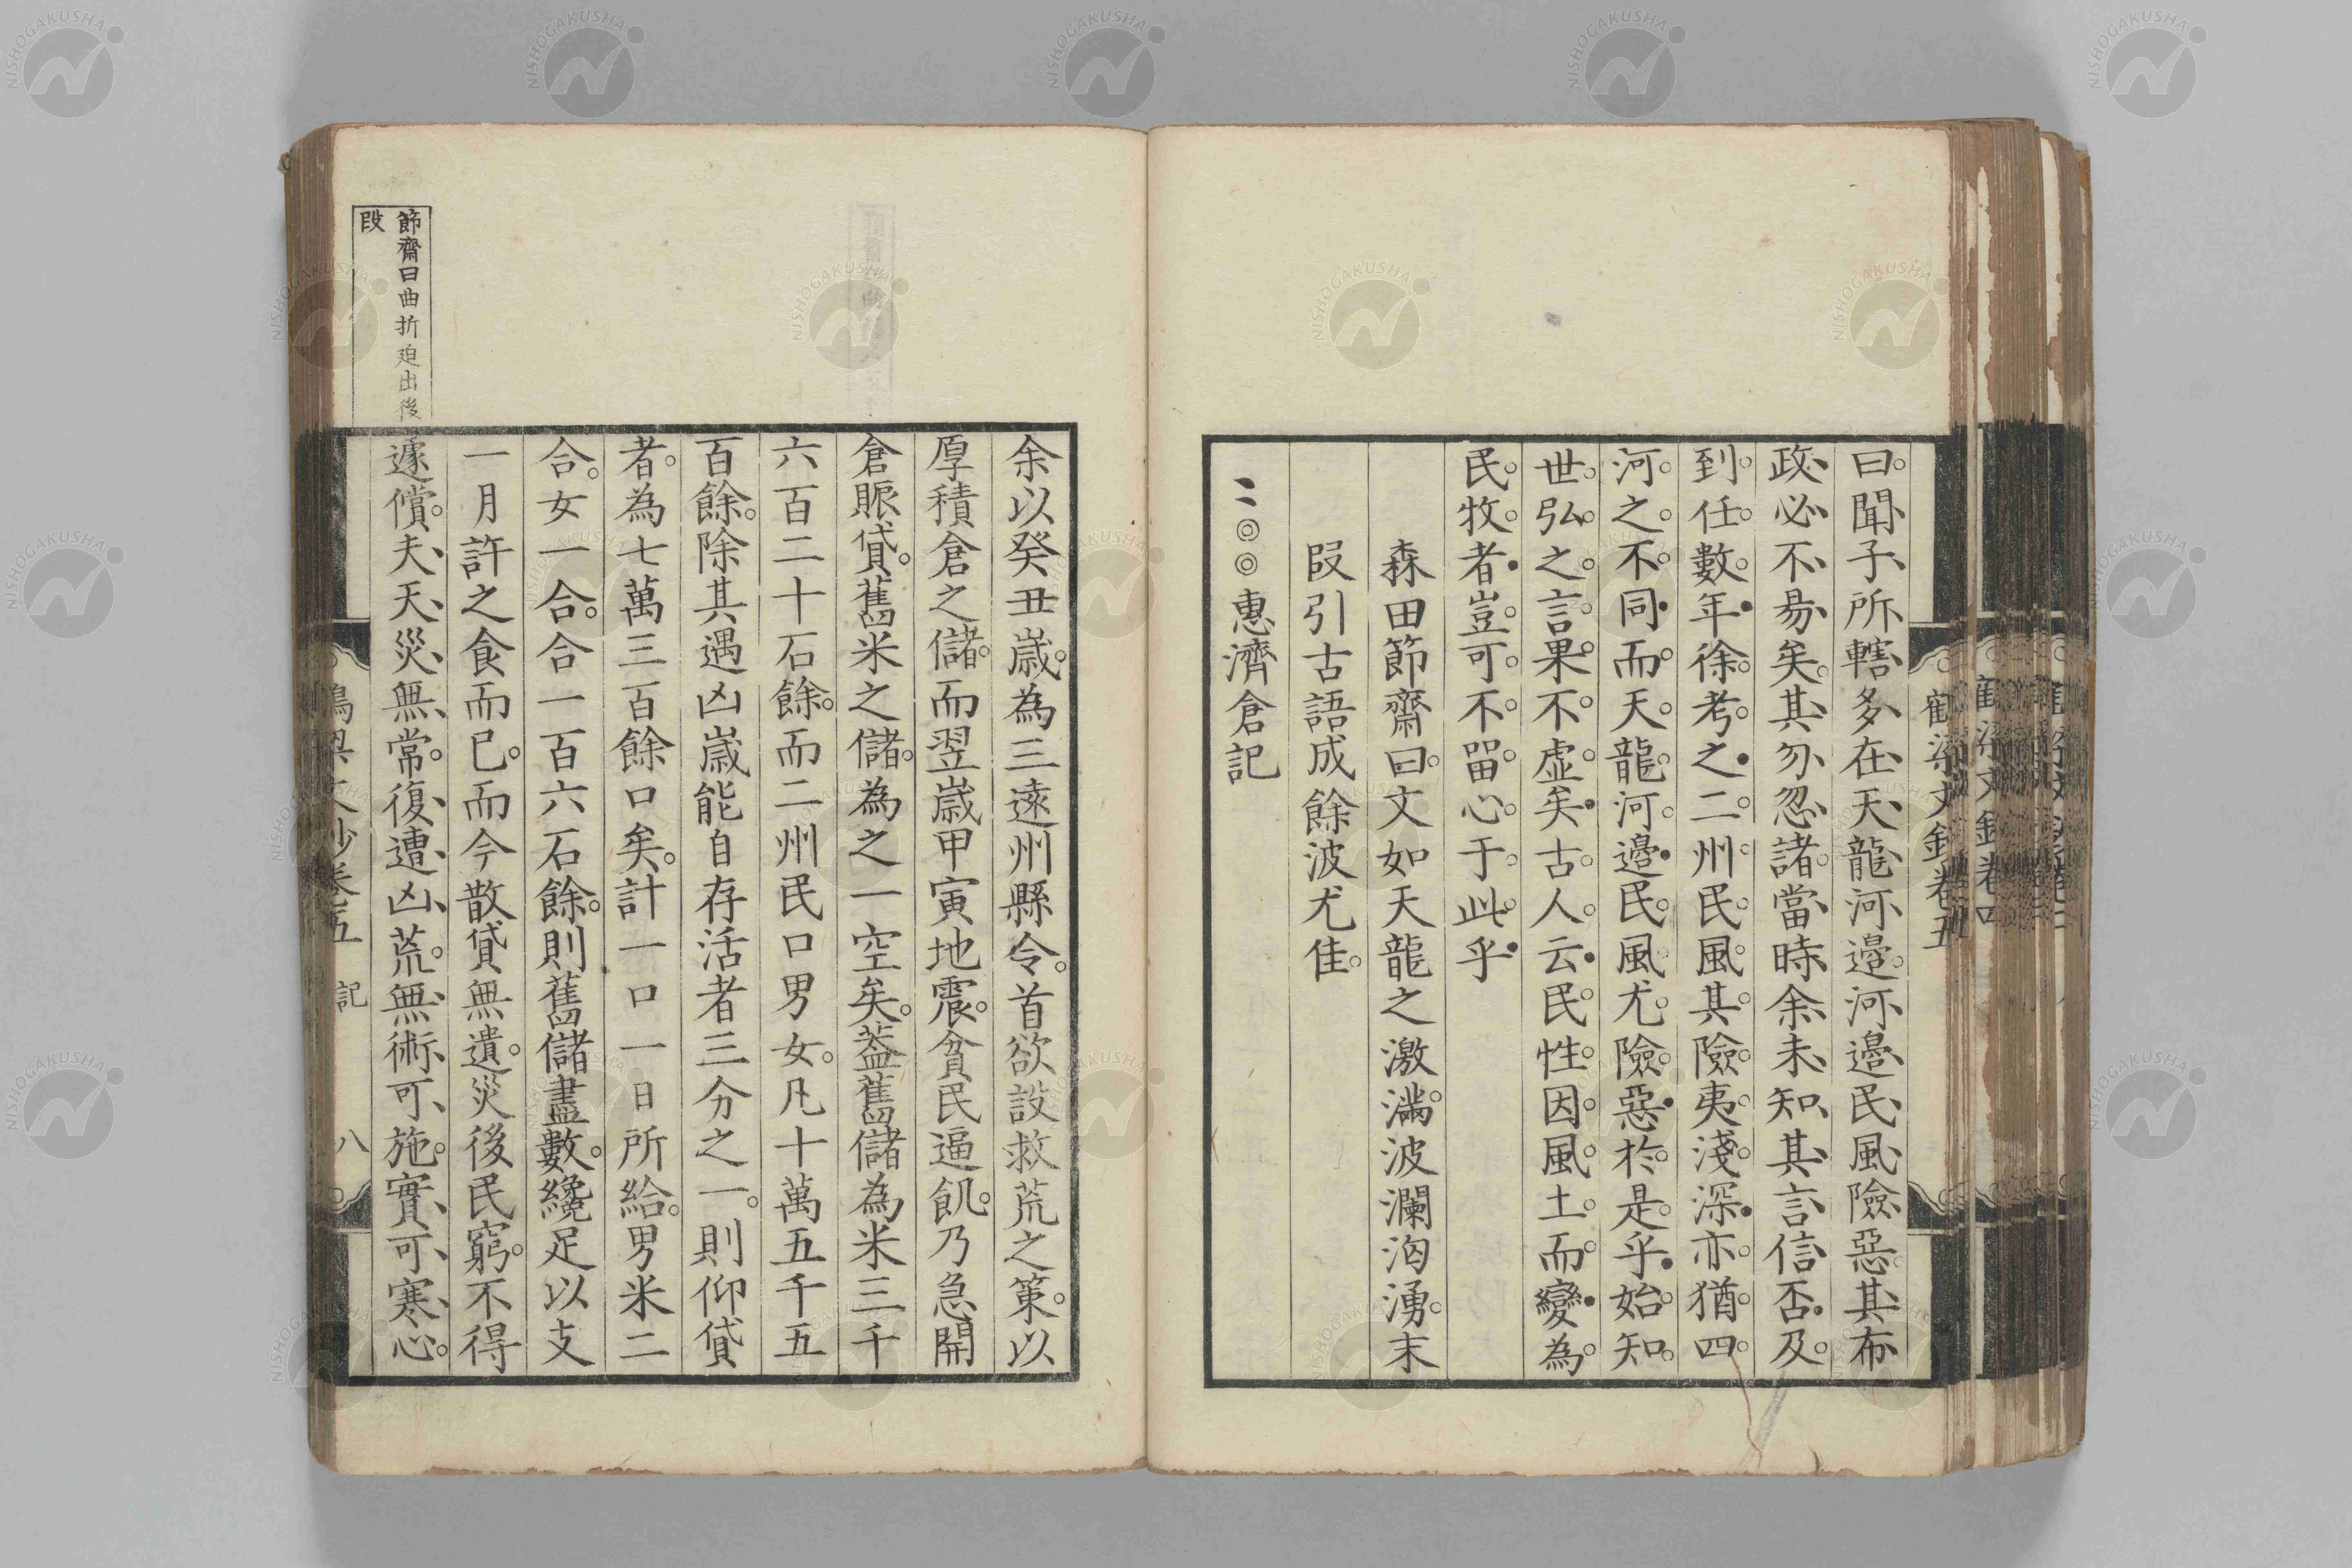 曰聞子所轄多在天龍河邉河邉民風險惡其布
政必不易矣其勿忽諸當時余未知其言信否及
到任數年徐考之二州民風其險夷淺深亦猶四
河之不同而天龍河邉民風尤險惡於是乎始知
世弘之言果不虚矣古人云民性因風土而變為
民牧者豈可不畱心于此乎
森田節齋曰文如天龍之激滿波瀾洶湧末
段引古語成餘波尤佳
惠濟倉記
余以癸丑歳為三遠州縣令首欲設救荒之策以
厚積倉之儲而翌歳甲寅地震貧民逼飢乃急開
倉賑貸舊米之儲為之一空矣葢舊儲為米三千
六百二十石餘而二州民口男女凡十萬五千五
百餘除其遇凶歳能自存活者三分之一則仰貸
者為七萬三百餘口矣計一口一日所給男米二
合女一合合一百六石餘則舊儲盡數纔足以支
一月許之食而已而今散貸無遺災後民窮不得
遽償夫天災無常復遭凶荒無術可施實可寒心
節齋曰曲折廹出後
段
鶴梁文鈔卷五 記 八
NISHOGAKUSHA